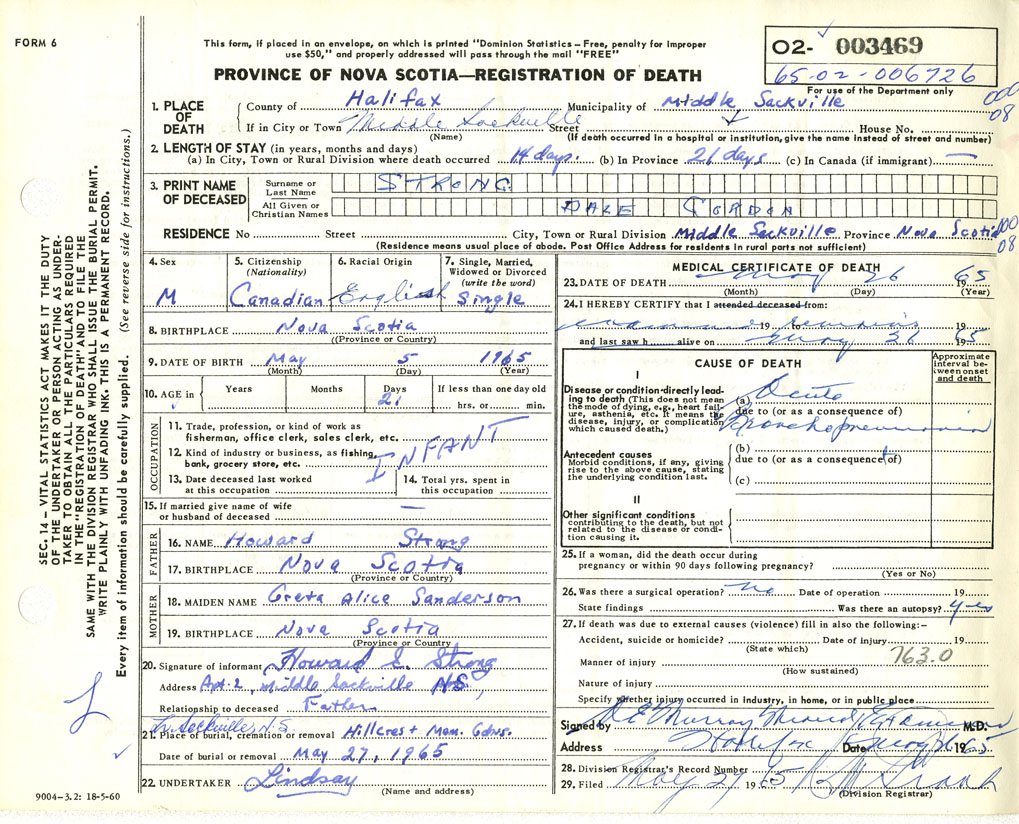 FORM 6
This form, if placed in an envelope, on which is printed "Dominion Statistics – Free, penalty for improper
use $50," and properly addressed will pass through the mail "FREE"
PROVINCE OF NOVA SCOTIA—REGISTRATION OF DEATH
02- 003469
65-02-006726
For use of the Department only
000
08
1. PLACE OF DEATH
County of Halifax Municipality of Middle Sackville
If in City or Town Middle Sackville Street House No.
(Name) (If death occurred in a hospital or institution, give the name instead of street and number)
2. LENGTH OF STAY (in years, months and days)
(a) In City, Town or Rural Division where death occurred 14 days. (b) In Province 21 days (c) In Canada (if immigrant) —
3. PRINT NAME OF DECEASED
Surname or Last Name STRONG
All Given or Christian Names DALE GORDON
RESIDENCE No Street City, Town or Rural Division Middle Sackville Province Nova Scotia
000
08
(Residence means usual place of abode. Post Office Address for residents in rural parts not sufficient)
4. Sex M
5. Citizenship (Nationality) Canadian
6. Racial Origin English
7. Single, Married, Widowed or Divorced (write the word) Single
8. BIRTHPLACE Nova Scotia
((Province or Country)
9. DATE OF BIRTH May 5 1965
(Month) (Day) (Year)
10. AGE in Years Months Days 21 If less than one day old hrs. or min.
OCCUPATION
11. Trade, profession, or kind of work as
fisherman, office clerk, sales clerk, etc.
12. Kind of industry or business, as fishing,
bank, grocery store, etc. INFANT
13. Date deceased last worked at this occupation
14. Total yrs. spent in this occupation
15. If married give name of wife
or husband of deceased —
FATHER
16. NAME Howard Strong
17. BIRTHPLACE Nova Scotia
(Province or Country)
MOTHER
18. MAIDEN NAME Greta Alice Sanderson
19. BIRTHPLACE Nova Scotia
(Province or Country)
20. Signature of informant Howard E. Strong
Address Apt-2, Middle Sackville N.S.,
Relationship to deceased Father
Sackville N.S.
21. Place of burial, cremation or removal Hillcrest Mem. Gdns.
Date of burial or removal May 27, 1965
22. UNDERTAKER Lindsay
(Name and address)
MEDICAL CERTIFICATE OF DEATH
23. DATE OF DEATH May 26 1965
(Month) (Day) (Year)
24. I HEREBY CERTIFY that I attended deceased from:
19 to remains 19
and last saw h alive on May 26 1965
CAUSE OF DEATH
Approximate interval between onset and death
I
Disease or condition directly leading to death (This does not mean the mode of dying, e.g., heart failure, asthenia, etc. It means the disease, injury, or complication which caused death.)
(a) Acute
due to (or as a consequence of)
Bronchopneumonia
Antecedent causes
Morbid conditions, if any, giving rise to the above cause, stating the underlying condition last.
(b)
due to (or as a consequence of)
(c)
II
Other significant conditions
contributing to the death, but not related to the disease or condition causing it.
25. If a woman, did the death occur during
pregnancy or within 90 days following pregnancy?
(Yes or No)
26. Was there a surgical operation? no Date of operation 19
State findings Was there an autopsy? yes
27. If death was due to external causes (violence) fill in also the following:–
Accident, suicide or homicide? Date of injury 19
(State which)
763.0
Manner of injury
(How sustained)
Nature of injury
Specify whether injury occurred in industry, in home, or in public place
Signed by Murray M.D.
Address Halifax Date May 26 1965
28. Division Registrar's Record Number
29. Filed May 27 1965
(Division Registrar)
SEC. 14 — VITAL STATISTICS ACT MAKES IT THE DUTY
OF THE UNDERTAKER OR PERSON ACTING AS UNDER-
TAKER TO OBTAIN ALL THE PARTICULARS REQUIRED
IN THE "REGISTRATION OF DEATH" AND TO FILE THE
SAME WITH THE DIVISION REGISTRAR WHO SHALL ISSUE THE BURIAL PERMIT.
WRITE PLAINLY WITH UNFADING INK. THIS IS A PERMANENT RECORD.
Every item of information should be carefully supplied. (See reverse side for instructions.)
9004-3.2: 18-5-60